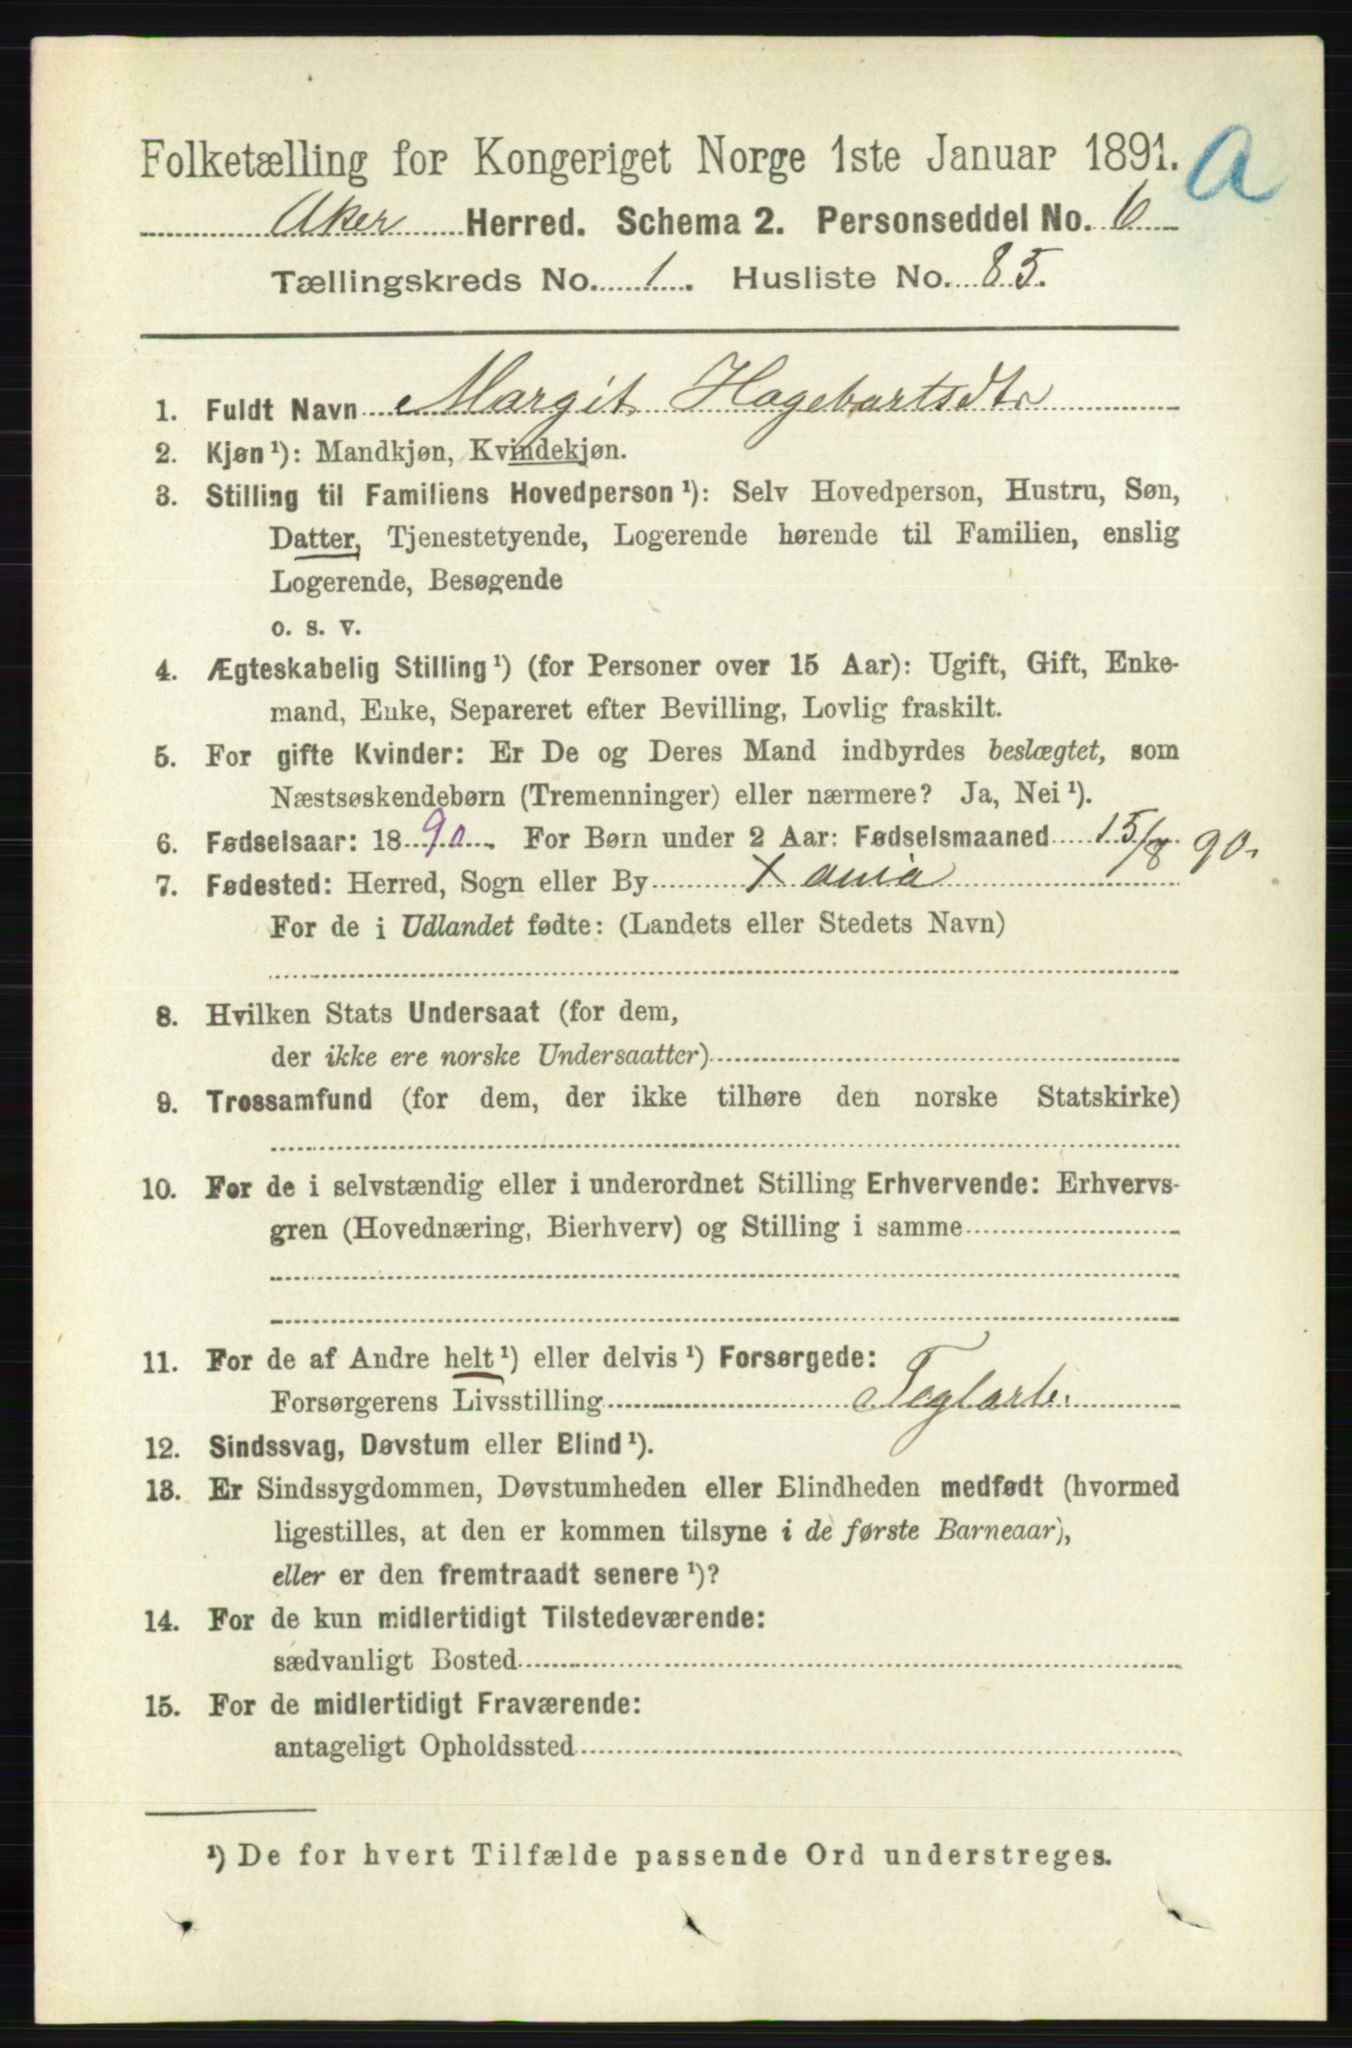 Folketælling for Kongeriget Norge 1ste Januar 1891. a
Aker Herred. Schema 2. Personseddel No. 6
Tællingskreds No. 1. Husliste No. 85.
1. Fuldt Navn Margit Hagebartsdtr
2. Kjøn¹): Mandkjøn, Kvindekjøn.
3. Stilling til Familiens Hovedperson¹): Selv Hovedperson, Hustru, Søn,
Datter, Tjenestetyende, Logerende hørende til Familien, enslig
Logerende, Besøgende
o. s. v.
4. Ægteskabelig Stilling¹) (for Personer over 15 Aar): Ugift, Gift, Enke-
mand, Enke, Separeret efter Bevilling, Lovlig fraskilt.
5. For gifte Kvinder: Er De og Deres Mand indbyrdes beslægtet, som
Næstsøskendebørn (Tremenninger) eller nærmere? Ja, Nei¹).
6. Fødselsaar: 1890. For Børn under 2 Aar: Fødselsmaaned 15/8 90.
7. Fødested: Herred, Sogn eller By Xania
For de i Udlandet fødte: (Landets eller Stedets Navn)
8. Hvilken Stats Undersaat (for dem,
der ikke ere norske Undersaatter)
9. Trossamfund (for dem, der ikke tilhøre den norske Statskirke)
10. For de i selvstændig eller i underordnet Stilling Erhvervende: Erhvervs-
gren (Hovednæring, Bierhverv) og Stilling i samme
11. For de af Andre helt¹) eller delvis¹) Forsørgede:
Forsørgerens Livsstilling Teglarb.
12. Sindssvag, Døvstum eller Blind¹).
13. Er Sindssygdommen, Døvstumheden eller Blindheden medfødt (hvormed
ligestilles, at den er kommen tilsyne i de første Barneaar),
eller er den fremtraadt senere¹)?
14. For de kun midlertidigt Tilstedeværende:
sædvanligt Bosted
15. For de midlertidigt Fraværende:
antageligt Opholdssted
¹) De for hvert Tilfælde passende Ord understreges.